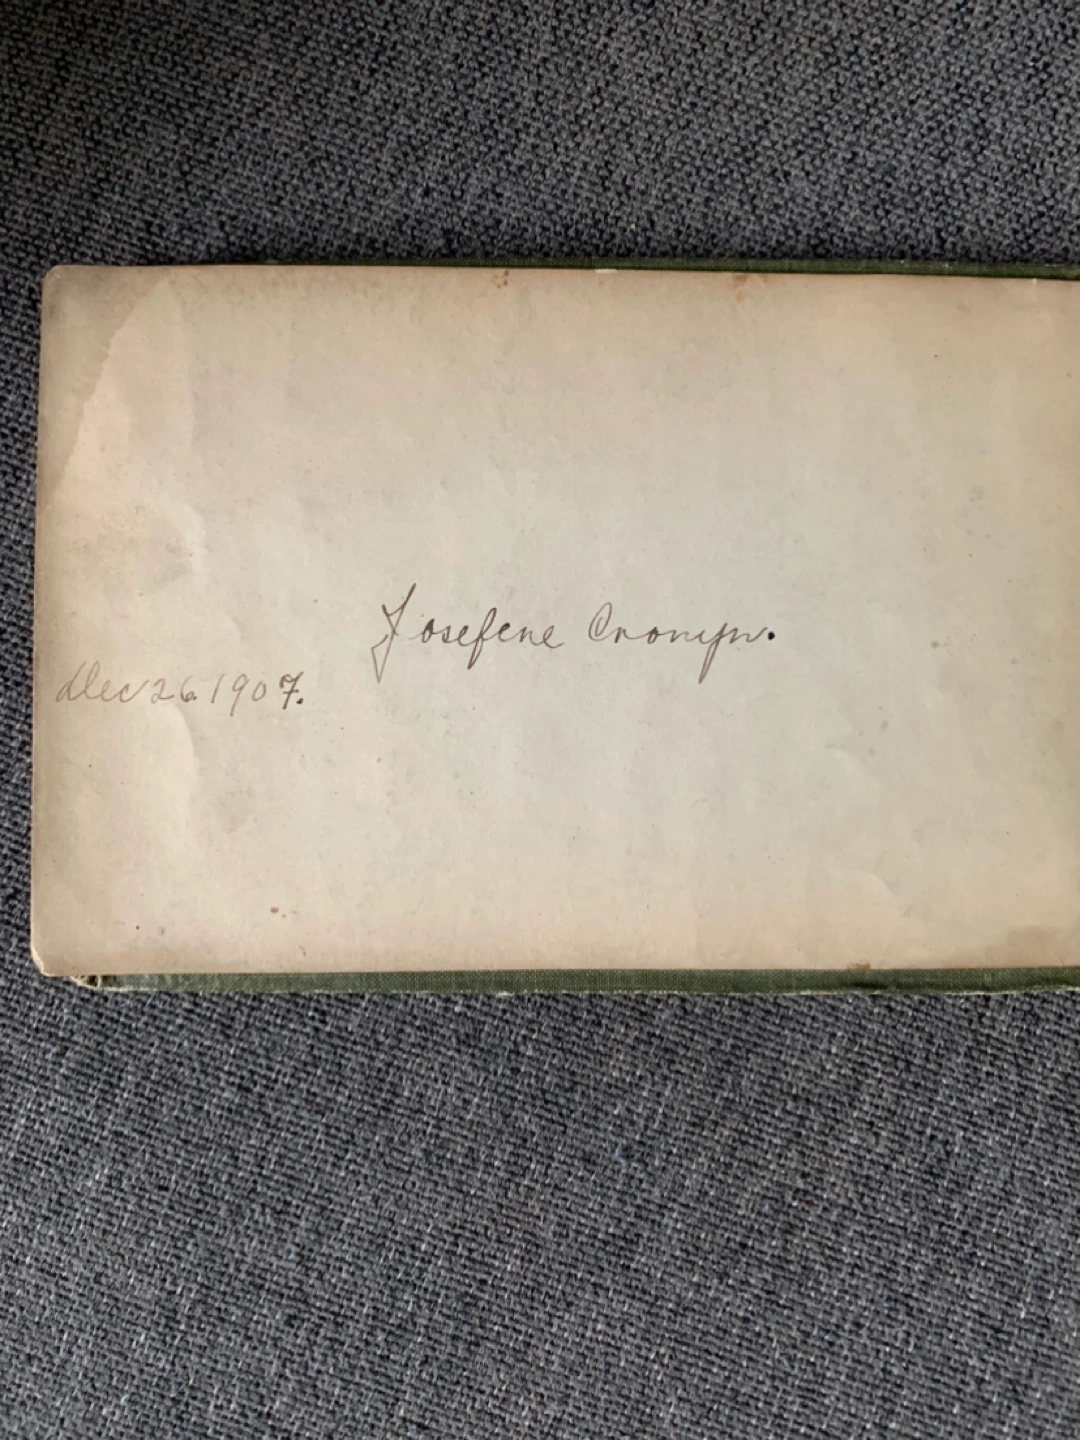 Josefene Cronyn.
Dec 26. 1907.